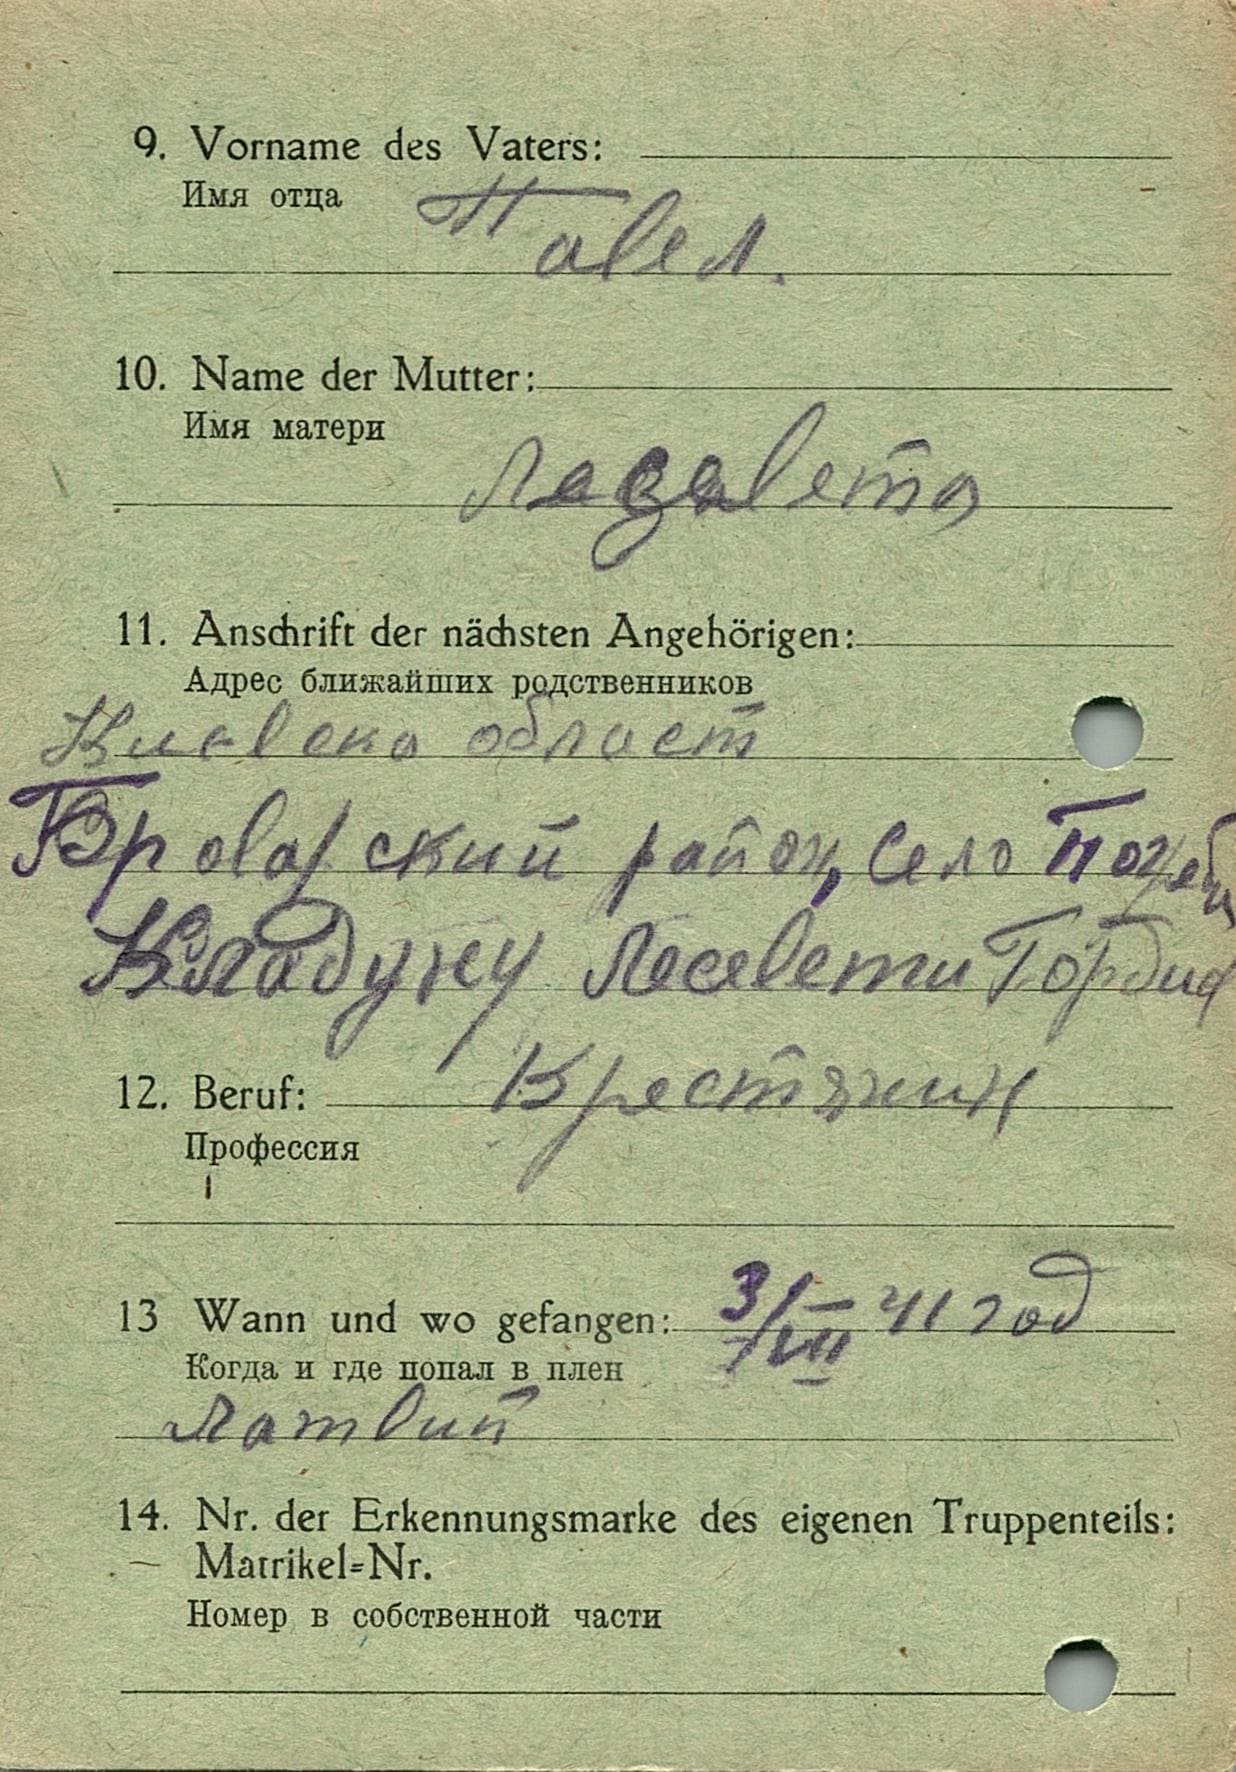 9. Vorname des Vaters:
Имя отца
Павел.
10. Name der Mutter:
Имя матери
11. Anschrift der nächsten Angehörigen:
Адрес ближайших родственников
Киевско област
Броварский район, село
Кладуну
12. Beruf: Крестянин
Профессия
13 Wann und wo gefangen: 3/VII 41 год
Когда и где попал в плен
Латвий
14. Nr. der Erkennungsmarke des eigenen Truppenteils:
— Matrikel=Nr.
Номер в собственной части